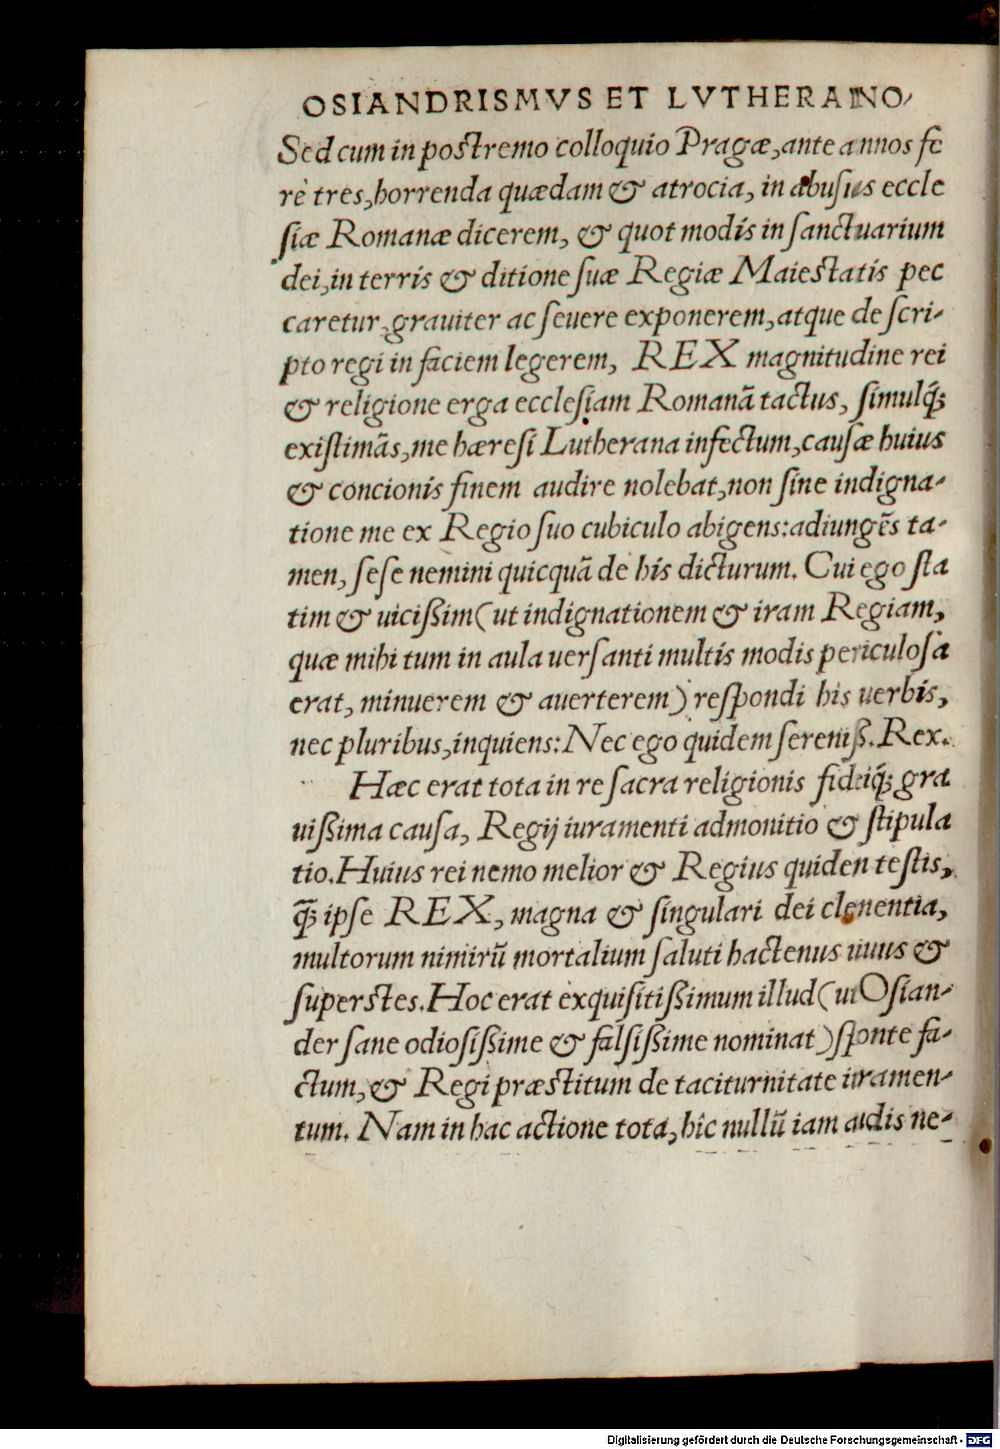 OSIANDRISMVS ET LVTHERANO-
Sed cum in postremo colloquio Pragæ, ante annos fe
rè tres, horrenda quædam & atrocia, in abusus eccle
siæ Romanæ dicerem, & quot modis in sanctuarium
dei, in terris & ditione suæ Regiæ Maiestatis pec
caretur, grauiter ac seuere exponerem, atque de scri-
pto regi in faciem legerem, REX magnitudine rei
& religione erga ecclesiam Romanā tactus, simulq́;
existimās, me hæresi Lutherana infectum, causæ huius
& concionis finem audire nolebat, non sine indigna-
tione me ex Regio suo cubiculo abigens: adiungēs ta-
men, sese nemini quicquā de his dicturum. Cui ego sta
tim & uicißim (ut indignationem & iram Regiam,
quæ mihi tum in aula uersanti multis modis periculosa
erat, minuerem & auerterem) respondi his uerbis,
nec pluribus, inquiens: Nec ego quidem sereniß. Rex.
Hæc erat tota in re sacra religionis fideiq́; gra
uißima causa, Regij iuramenti admonitio & stipula
tio. Huius rei nemo melior & Regius quiden testis,
q̃; ipse REX, magna & singulari dei clenentia,
multorum nimirū mortalium saluti hactenus uiuus &
superstes. Hoc erat exquisitißimum illud (ut Osian-
der sane odiosißime & falsißime nominat) sponte fa-
ctum, & Regi præstitum de taciturnitate iuramen-
tum. Nam in hac actione tota, hîc nullū iam audis ne-
Digitalisierung gefördert durch die Deutsche Forschungsgemeinschaft - DFG